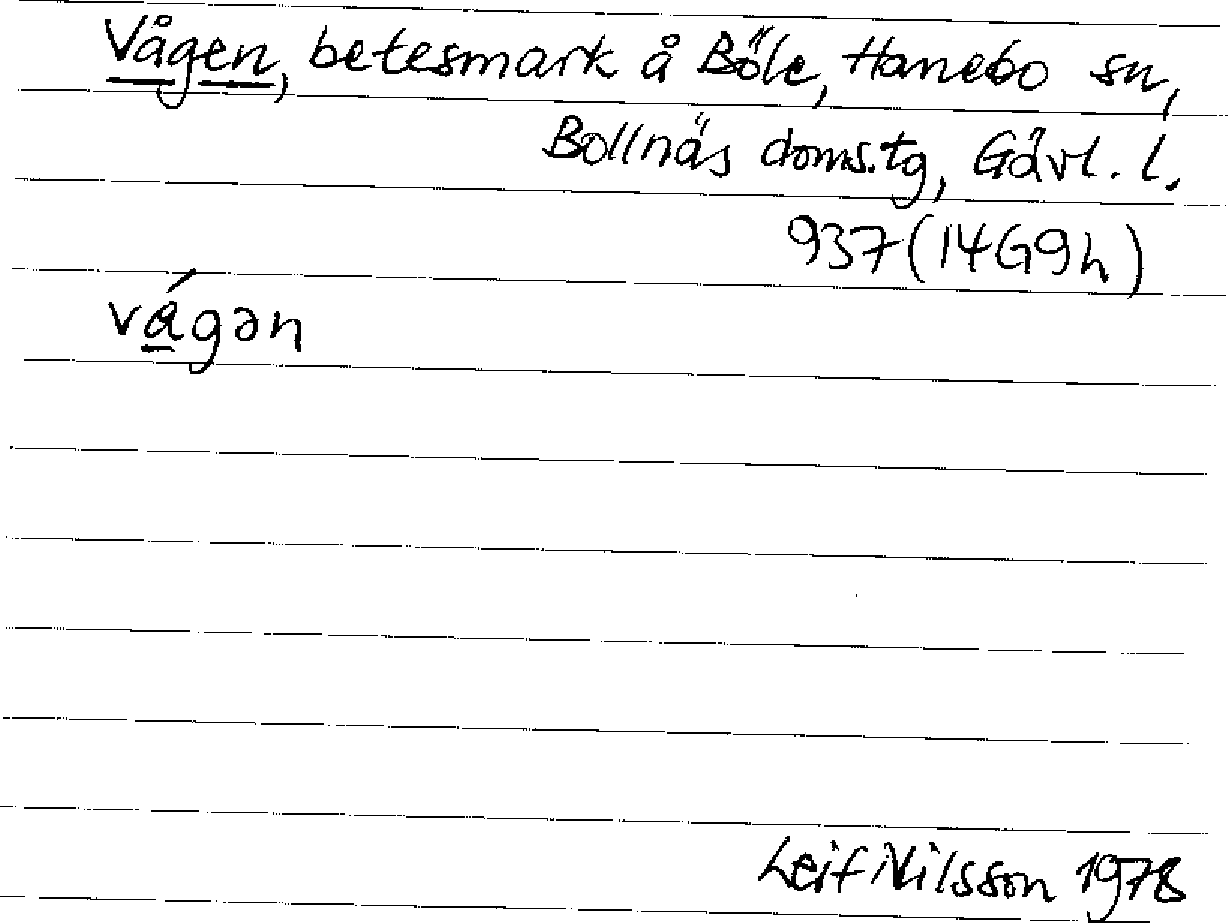 Vågen, betesmark å Böle, Hanebo sn,
Bollnäs doms.tg, Gävl. l.
937 (14G9h)
vágən
Leif Nilsson 1978